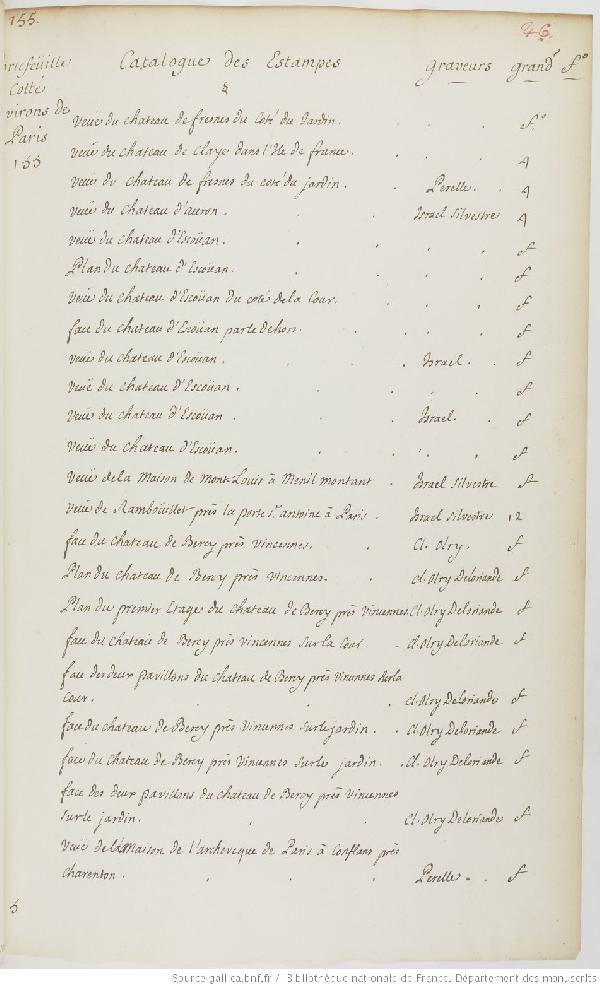 155.
46.
Catalogue des Estampes
graveurs grand.r f.o
Cotté
Paris
155
Veüe du chateau de fresnes du coté du Jardin. f.o
Veüe du chateau de claye dans l'Ile de france. 4
Veüe du chateau de fresnes du coté du jardin. Perelle. 4
Veüe du chateau d'auron. Israel Silvestre 4
Veüe du chateau d'Escoüan. f
Plan du chateau d'Escoüan. f
Veüe du chateau d'Escoüan du coté de la Cour. f
face du chateau d'Escoüan par le dehors. f
Veüe du chateau d'Escoüan. Israel. f
Veüe du chateau d'Escoüan. f
Veüe du chateau d'Escoüan. Israel. f
Veüe du chateau d'Escoüan. f
Veüe de la Maison de Mont-Louis à Menil montant. Israel Silvestre f
Veüe de Ramböuillet près la porte St. antoine à Paris. Israel Silvestre 12
face du chateau de Bercy près Vincennes. Cl. Olry. f
Plan du chateau de Bercy près Vincennes. Cl. Olry Deloriande f
Plan du premier Etage du chateau de Bercy près Vincennes Cl. Olry Deloriande f
face du chateau de Bercy près Vincennes sur la Cour. Cl. Olry Deloriande f
face des deux pavillons du chateau de Bercy près Vincennes sur la
Cour. Cl. Olry Deloriande f
face du chateau de Bercy près Vincennes sur le jardin. Cl. Olry Deloriande f
face du chateau de Bercy près Vincennes sur le jardin. Cl. Olry Deloriande f
face des deux pavillons du chateau de Bercy près Vincennes
sur le jardin. Cl. Olry Deloriande f
Veüe de la Maison de l'archeveque de Paris à Conflans près
Charenton. Perelle. f
Source gallica.bnf.fr / Bibliothèque nationale de France. Département des manuscrits